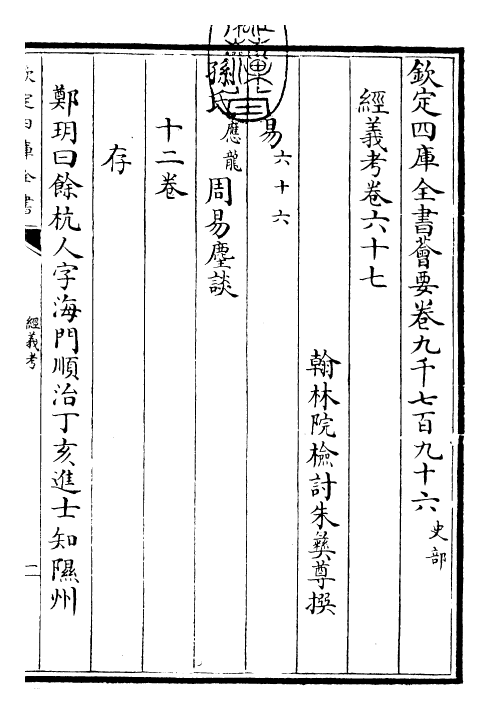 欽定四庫全書薈要卷九千七百九十六 史部
經義考卷六十七
翰林院檢討朱彝尊撰
易六十六
孫氏應龍周易麈談
十二卷
存
鄭玥曰餘杭人字海門順治丁亥進士知隰州
欽定四庫全書
經義考